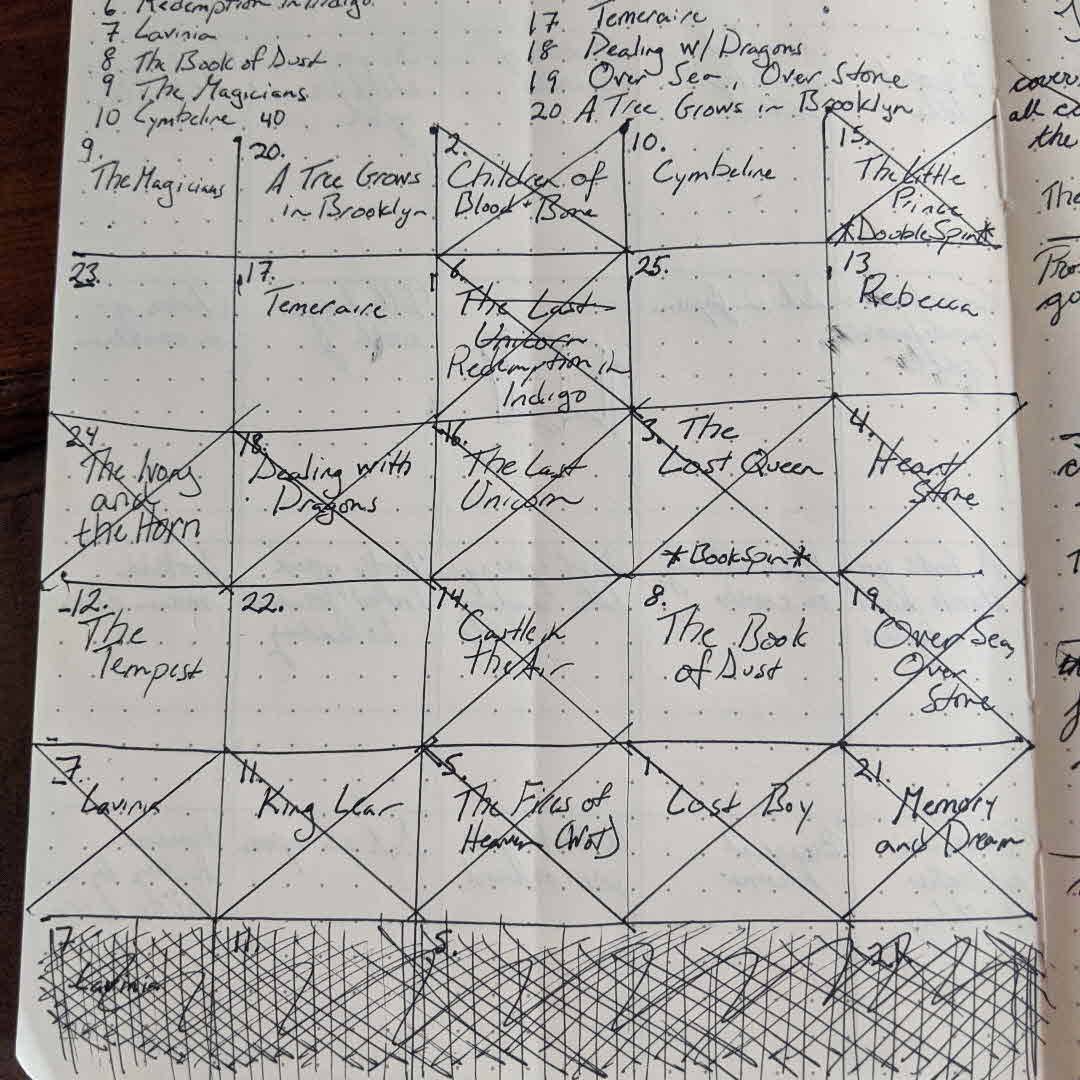 6. Redemption in Indigo
7 Lavinia
8 The Book of Dust
9 The Magicians
10 Cymbeline 40
17. Temeraire
18 Dealing w/ Dragons
19. Over Sea, Over Stone
20. A Tree Grows in Brooklyn
9.
The Magicians
20.
A Tree Grows
in Brooklyn
2.
Children of
Blood + Bone
10.
Cymbeline
15.
The Little
Prince
*DoubleSpin*
23.
17.
Temeraire
6.
The Last
Unicorn
Redemption in
Indigo
25.
13
Rebecca
24
The Ivory
and
the Horn
18.
Dealing with
Dragons
16.
The Last
Unicorn
3. The
Lost Queen
*BookSpin*
4.
Heart
Stone
12.
The
Tempest
22.
14.
Castle in
the Air
8.
The Book
of Dust
19.
Over Sea,
Over
Stone
7.
Lavinia
11.
King Lear
5.
The Fires of
Heaven (WoT)
1.
Lost Boy
21.
Memory
and Dream
17
Lavinia
11.
5.
21
all
the
The
go